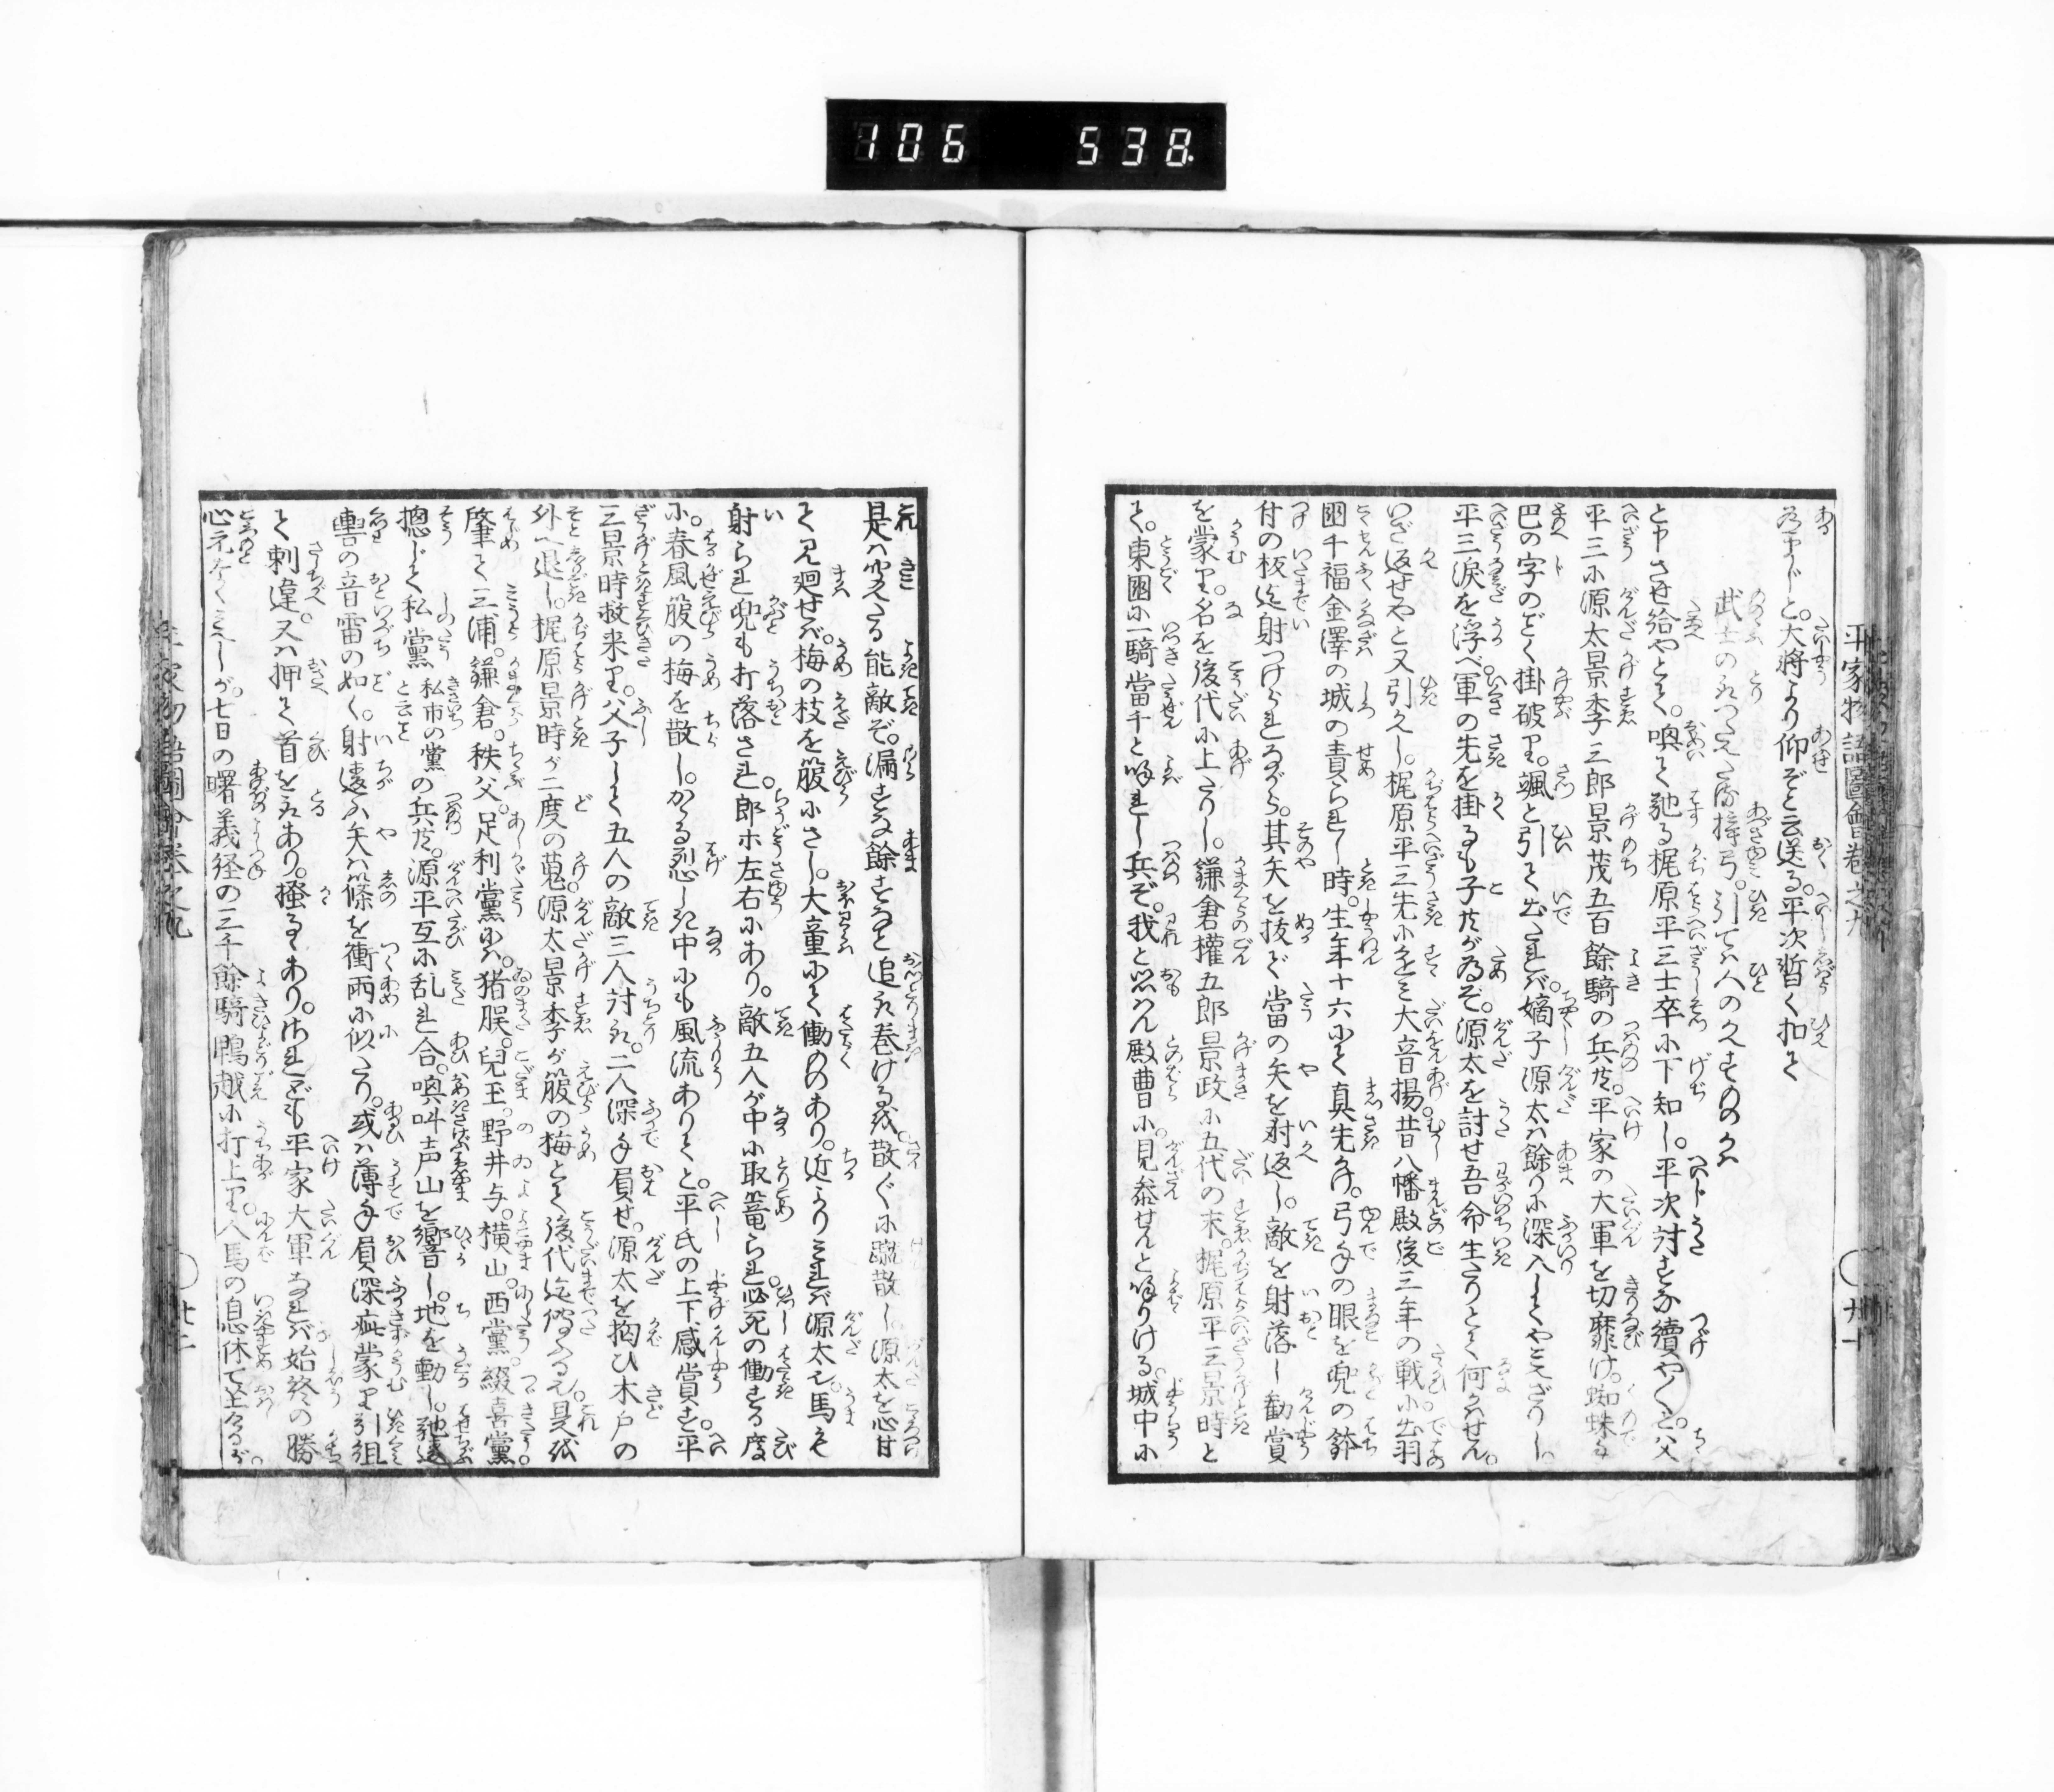 106 538
平家物語圖會巻之九
為平ドと。大將より仰ぞと云送る。平次暫く扣て
武士のとりつたへたる梓弓。引ては人のかへすものかは
と申させ給やとて。喚て馳る梶原平三士卒に下知し。平次討すな續やくと。父
平三に源太景季三郎景茂五百餘騎の兵共。平家の大軍を切靡け。蜘蛛手
巴の字のごく掛破り。颯と引て出たれば。嫡子源太は餘りに深入してやみえざりし。
平三涙を浮べ。軍の先を掛るも子共が為ぞ。源太を討せ吾命生たりとて何かはせん。
いざ返せやと又引かへし。梶原平三先にすゝみ大音揚。昔八幡殿後三年の戦に出羽
國千福金澤の城の責られし時。生年十六にて真先かけ。弓手の眼を兜の鉢
付の板迄射つけられながら。其矢を抜で當の矢を射返し。敵を射落し勧賞
を蒙り。名を後代に上たりし。鎌倉權五郎景政に五代の末。梶原平三景時と
て。東國に一騎當千と呼れし兵ぞ。我と思はん殿曹に。見参せんと呼りける。城中に
是は聞えたる能敵ぞ。漏すな餘すなと追取巻けるを。散ぐに蹴散し。源太を心甘
て見廻せば。梅の枝を箙にさし。大童にて働ものあり。近よりみれば源太也。馬も
射られ兜も打落され。郎木左右にあり。敵五人が中に取篭られ。必死の働する度
に。春風箙の梅を散し。かゝる烈しき中にも風流ありてと。平氏の上下感賞す。平
三景時救来り。父子して五人の敵三人討取。二人深手負せ。源太を抱ひ木戸の
外へ退し。梶原景時が二度の蒐。源太景季が箙の梅とて。後代迄傳ふる也。是を
肇て三浦。鎌倉。秩父。足利黨には。猪股。兒玉。野井与。横山。西黨。綴喜黨。
摠じて私黨 私市の黨の兵共。源平互に乱れ合。喚叫声山を響し。地を動し。馳違
轡の音雷の如く。射違ふ矢は篠を衝雨に似たり。或は薄手負深疵蒙り引組
て刺違。又は押て首を取あり。掻るゝあり。されども平家大軍なれば始終の勝
心元なくみえしが。七日の曙義経の三千餘騎鴨越に打上り。人馬の息休て居たるが。